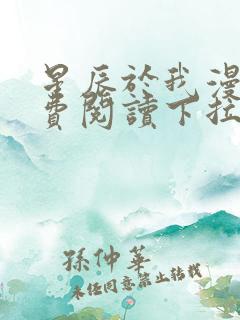 星辰於我漫
費閱讀下拉
孫仲華
未经同意禁止转载